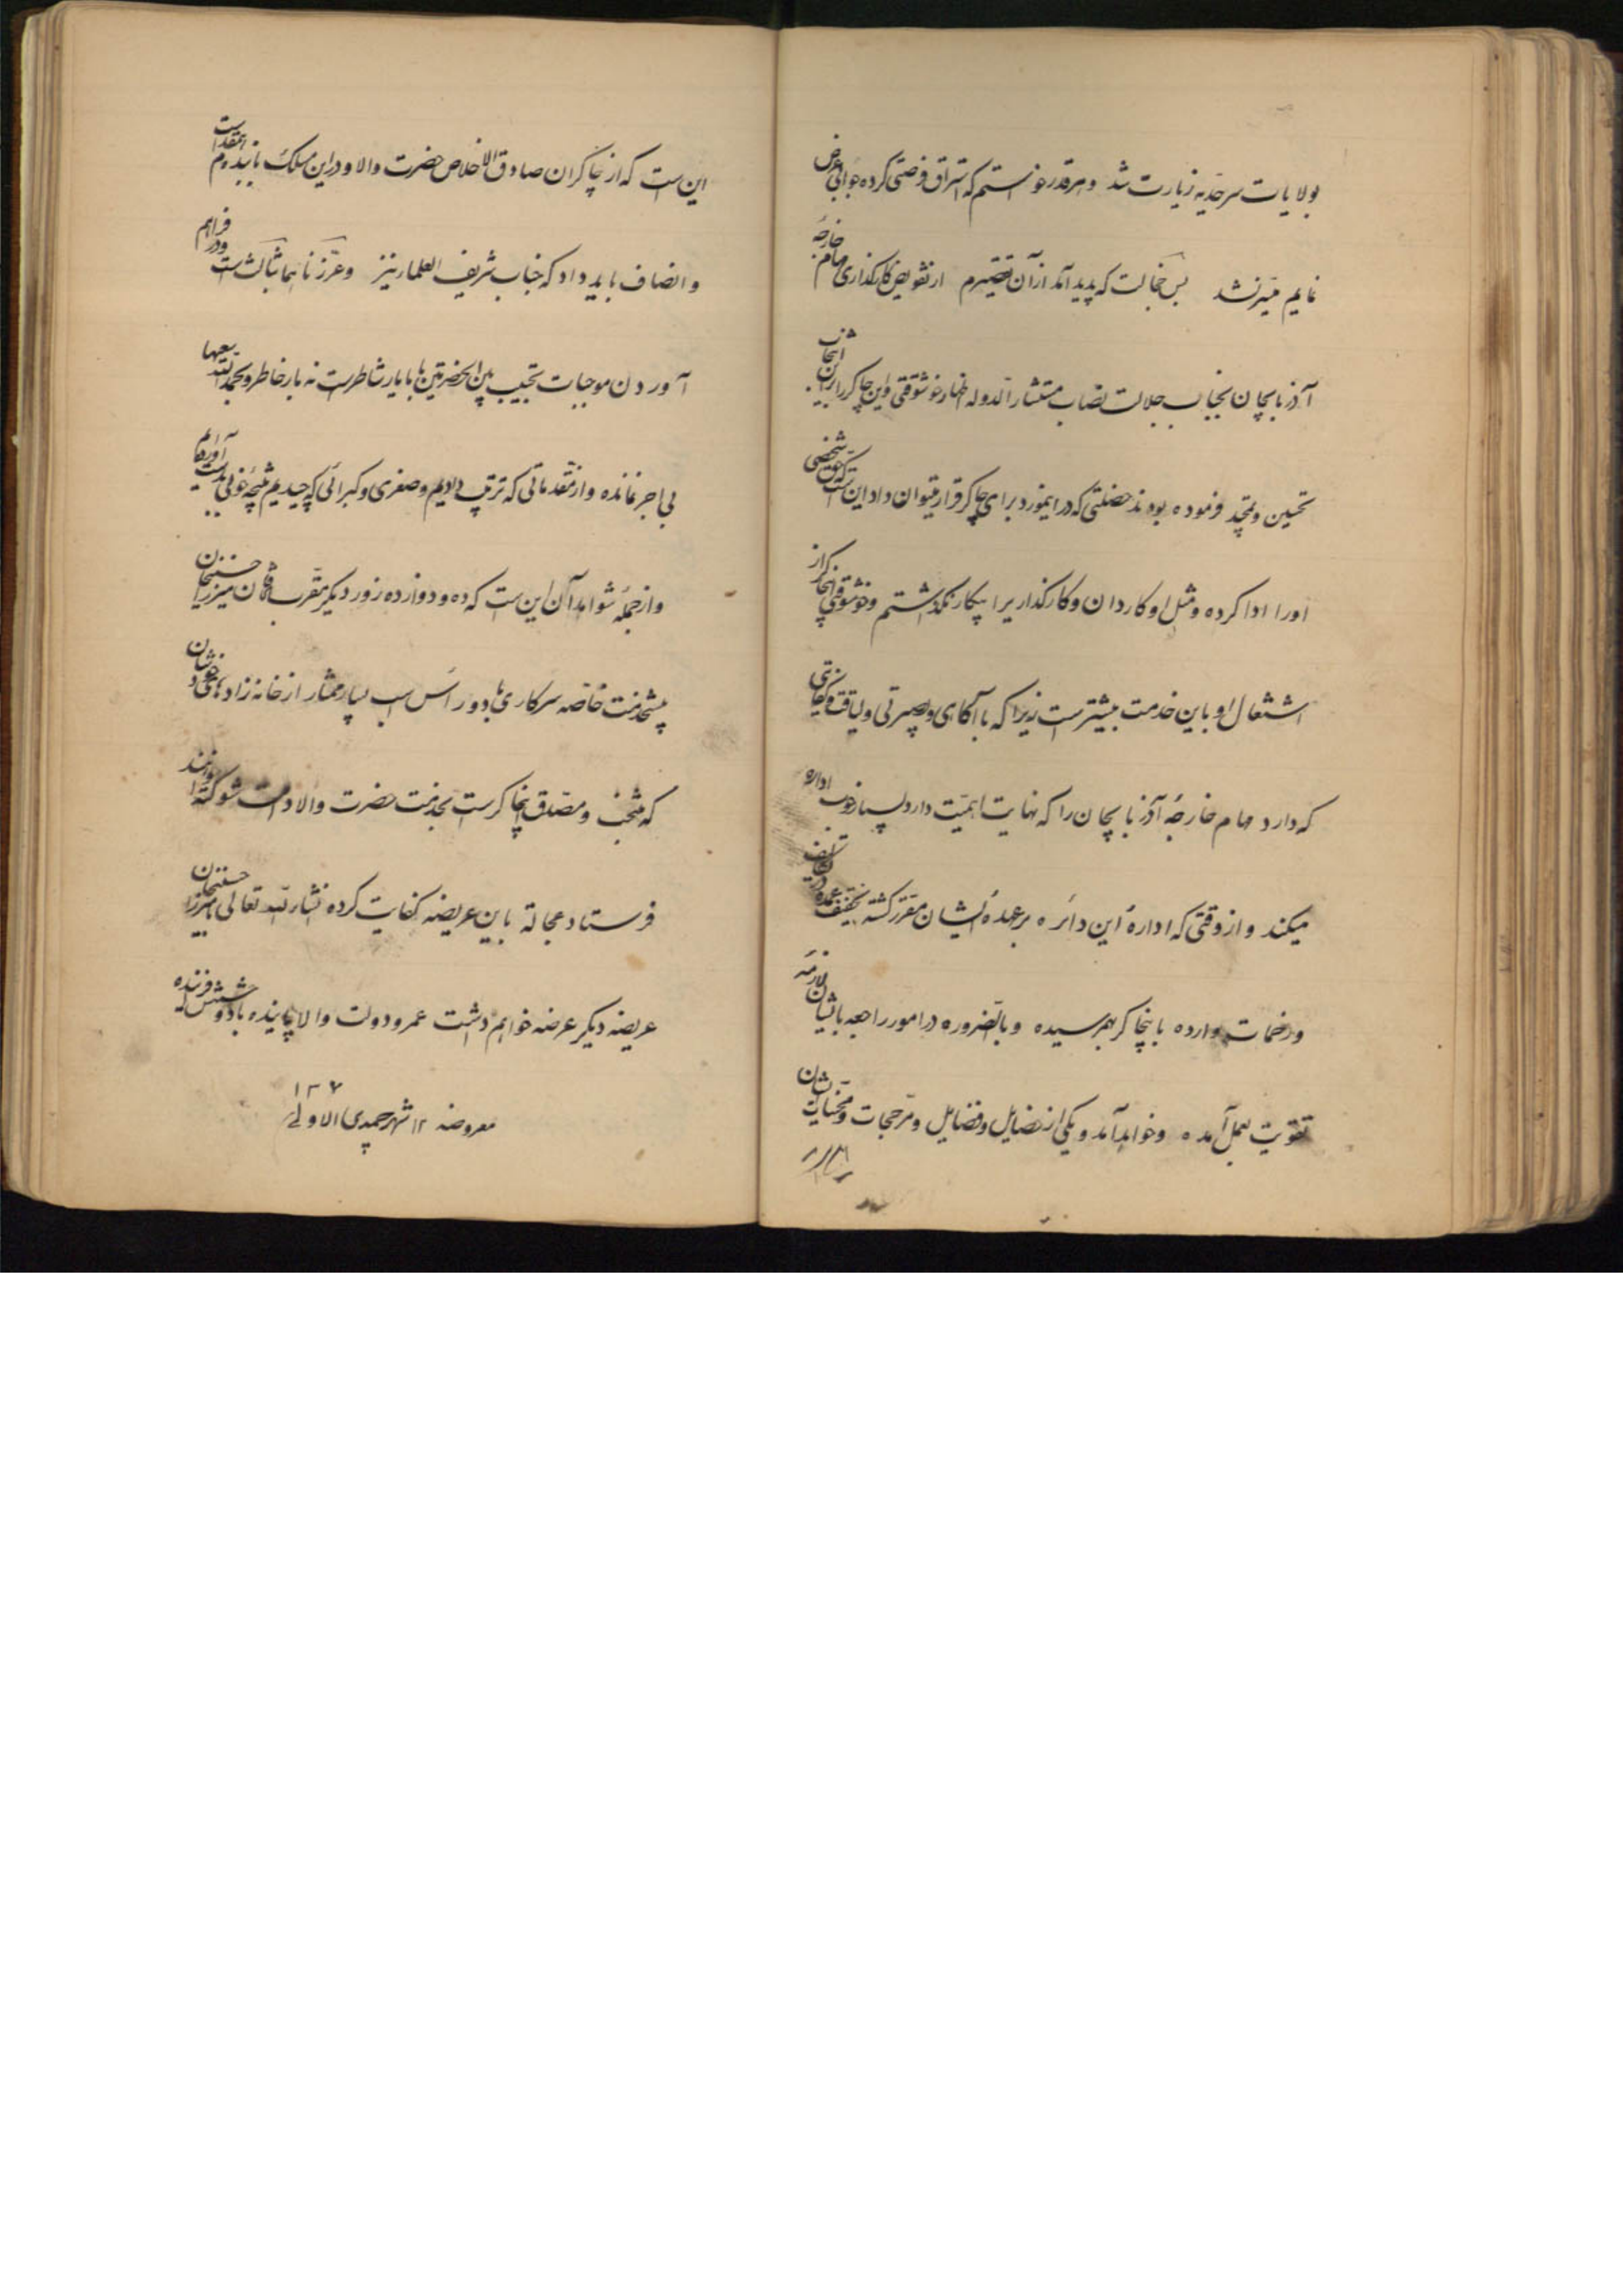 بولایات سرحدیه زیارت شد و هرقدر خواستم که استراق فرصتی کرده جوابی عرض
نمایم میسر نشد بس خجالت که پدید آمد ازآن تقصیرم از تفویض کارگذاری مهام خارجهٔ
آذربایجان بجناب جلالت نصاب مستشار الدوله اظهار خوشوقتی و این چاکر را براین انتخاب
تحسین و تمجید فرموده بودند خصلتی که دراینمورد برای چاکر قرار میتوان داد این است که حق شخصی
اورا ادا کرده و مثل او کاردان و کارگذاریرا بیکار نگذاشتم و خوشوقتی اینچاکر از
اشتغال او باین خدمت بیشترست زیرا که با آگاهی و بصیرتی و لیاقت و کفایتی
که دارد مهام خارجهٔ آذربایجان را که نهایت اهمیت دارد بسیار خوب اداره
میکند و از وقتی که ادارهٔ این دائره برعهدهٔ ایشان مقرر گشته تخفیف عمده در تکالیف
و زحمات وارده باینچاکر بهم رسیده و بالضروره در امور راجعه بایشان لازمه
تقویت بعمل آمده و خواهد آمد و یکی از خصایل و فضایل و مرجحات و محسنات ایشان
این است که از چاکران صادق الاخلاص حضرت والا و دراین مسلک با بنده هم عقیده است
و انصاف باید داد که جناب شریف العلما نیز و عززناهما بثالث است و در فراهم
آوردن موجبات تحبیب بین الحضرتین با ما یار شاطرست نه بار خاطر و بحمدالله سعیها
بی اجر نمانده و از مقدماتی که ترتیب دادیم و صغری و کبرائی که چیدیم نتیجهٔ خوبی بدست آورده‌ایم
و از جملهٔ شواهد آن این است که ده و دوازده روز دیگر مقرب الخاقان میرزا حسنخان
پیشخدمت خاصه سرکاری با دو راس اسب بسیار ممتاز از خانه زادهای خودشان
که منتخب و مصدق اینچاکرست بخدمت حضرت والا دامت شوکته خواهند
فرستاد عجالة باین عریضه کفایت کرده انشاءالله تعالی با میرزا حسنخان
عریضه دیگر عرضه خواهم داشت عمر و دولت والا پاینده باد و شمسش فروزنده
معروضه ١٢ شهر جمیدی الاولی